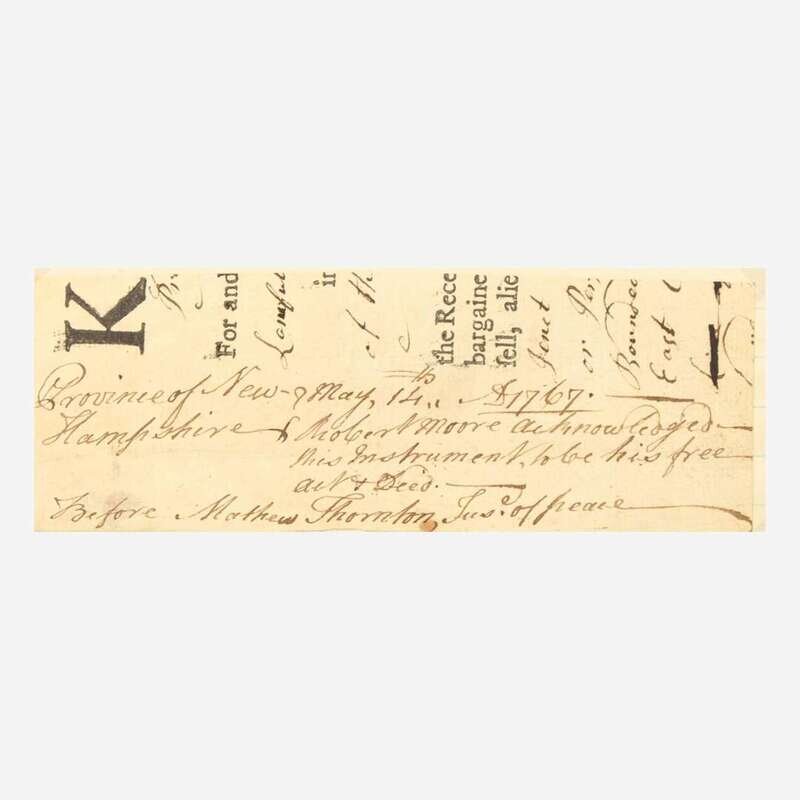 K
Pr
For and
Lawful
in
of th
the Rece
bargaine
ſell, alie
Jenet
or Par
Bounded
East
Province of New- } May, 14th,, AD 1767.
Hampshire } Robert Moore acknowledged
this Instrument, to be his free
act & Deed.
Before Mathew Thornton Jusce. of peace